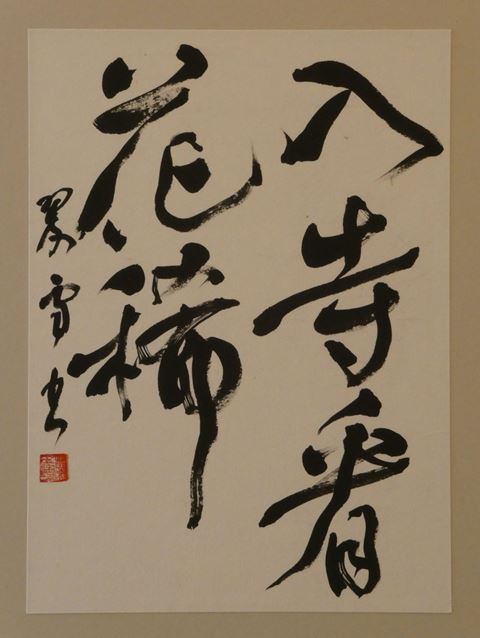 入寺看
花稀
雪書